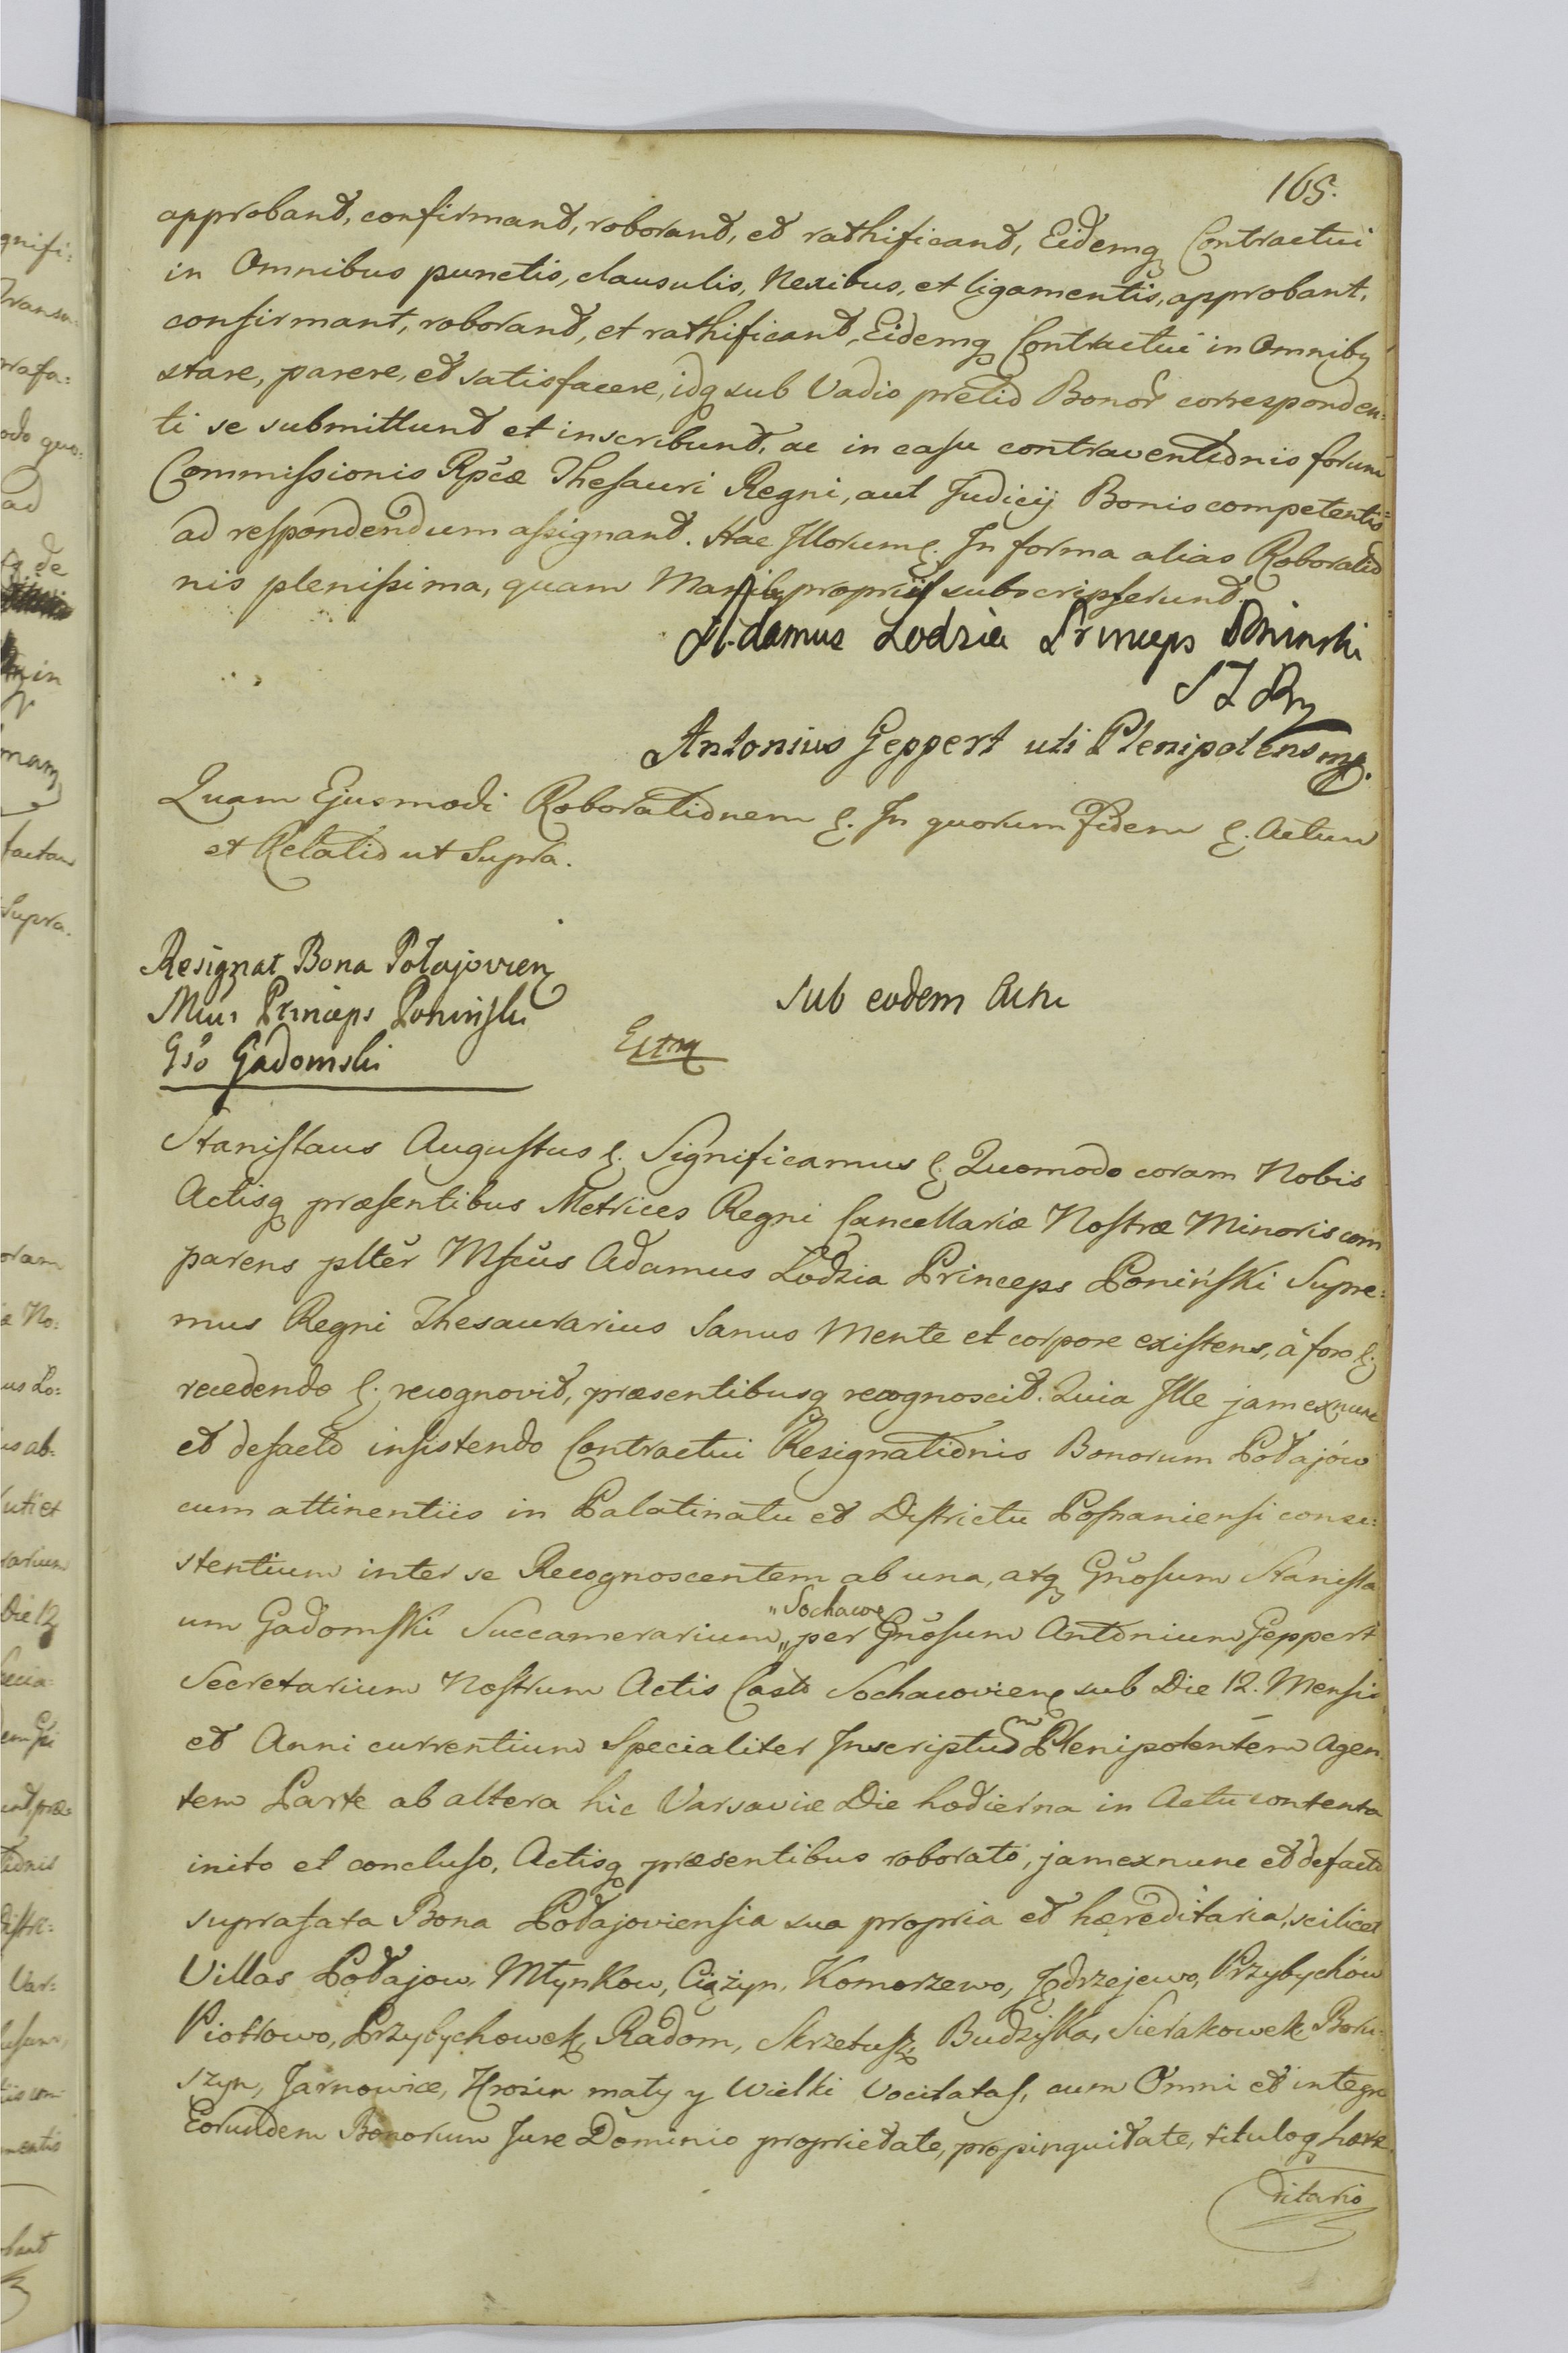 165.
approbant, confirmant, roborant, et rathificant, Eidemq Contractui
in Omnibus punctis, clausulis, Nexibus, et ligamentis, approbant,
confirmant, roborant, et rathificant, Eidemq Contractui in Omnibq
stare, parere, et satisfacere, idq sub Vadio pretio Bonor corresponden:
ti se submittunt et inscribunt, ac in casu contraventionis forum
Commissionis Rpcæ Thesauri Regni, aut Judicij Bonis competentis
ad respondendum assignant. Hac Illorum &. In forma alias Roboratio
nis plenissima, quam Manibq proprijs subscripserunt.
Adamus Lodzia Princeps Poninski
Antonius Geppert uti Plenipotens mp.
Quam Ejusmodi Roborationem &. In quorum Fidem &. Actum
et Relatio ut Supra.
Resignat Bona Połajovien
Princeps Poninski
Gso Gadomski
Extra
Sub eodem Actu
Stanislaus Augustus &. Significamus &. Quomodo coram Nobis
Actisq præsentibus Metrices Regni Cancellariæ Nostræ Minoris com
parens plter Mfcus Adamus Łodzia Princeps Poniński Supre:
mus Regni Thesaurarius Sanus Mente et corpore existens, à foro &.
recedendo &. recognovit, præsentibusq recognoscit. Quia Ille jam exnunc
et defacto insistendo Contractui Resignationis Bonorum Połajów
cum attinentiis in Palatinatu et Districtu Posnaniensi consi:
stentium inter se Recognoscentem ab una, atq Gnosum Stanisla
um Gadomski Succamerarium „Sochacov „per Gnosum Antonium Geppert
Secretarium Nostrum Actis Castr Sochacovien sub Die 12. Mensis
et Anni currentium Specialiter Inscriptum Plenipotentem Agen
tem Parte ab altera hic Varsaviæ Die hodierna in Actu contenta
inito et concluso, Actisq præsentibus roborato, jam exnunc et defacto
suprafata Bona Połajoviensia sua propria et hæreditaria, scilicet
Villas Połajow, Młynkow, Ciążyn, Komorzewo, Jędrzejewo, Przybychów
Piotrowo, Przybychowek, Radom, Skrzetusz, Budziska, Sierakowek, Boru
szyn, Jarnowice, Hrosin mały y Wielki Vocitatas, cum Omni et integro
Eorundem Bonorum Jure Dominio proprietate, propinquitate, tituloq hære
ditario